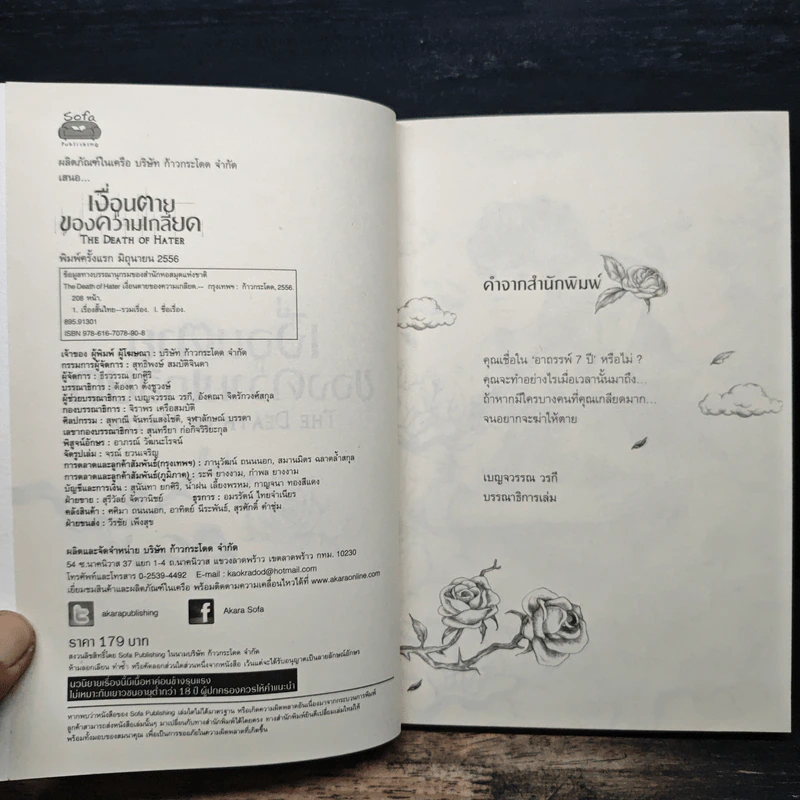 Sofa
Publishing
ผลิตภัณฑ์ในเครือ บริษัท ก้าวกระโดด จำกัด
เสนอ...
เงื่อนตาย
ของความเกลียด
THE DEATH OF HATER
พิมพ์ครั้งแรก มิถุนายน 2556
ข้อมูลทางบรรณานุกรมของสำนักหอสมุดแห่งชาติ
The Death of Hater เงื่อนตายของความเกลียด.-- กรุงเทพฯ : ก้าวกระโดด, 2556.
208 หน้า.
1. เรื่องสั้นไทย--รวมเรื่อง. I. ชื่อเรื่อง.
895.91301
ISBN 978-616-7078-90-8
เจ้าของ ผู้พิมพ์ ผู้โฆษณา : บริษัท ก้าวกระโดด จำกัด
กรรมการผู้จัดการ : สุทธิพงษ์ สมบัติจินดา
ผู้จัดการ : ธีรวรรณ ยกศิริ
บรรณาธิการ : ต้องตา ตั้งชูวงษ์
ผู้ช่วยบรรณาธิการ : เบญจวรรณ วรกี, อังคณา จิตรักวงศ์สกุล
กองบรรณาธิการ : จิราพร เครือสมบัติ
ศิลปกรรม : สุพาณี จันทร์แสงโชติ, จุฬาลักษณ์ บรรดา
เลขากองบรรณาธิการ : สุนทรียา ก่อกิจวิริยะกุล
พิสูจน์อักษร : อาภรณ์ วัฒนะโรจน์
จัดรูปเล่ม : จรณ์ ยวนเจริญ
การตลาดและลูกค้าสัมพันธ์(กรุงเทพฯ) : ภานุวัฒน์ ถนนนอก, สมานมิตร ฉลาดล้ำสกุล
การตลาดและลูกค้าสัมพันธ์(ภูมิภาค) : ระพี ยางงาม, กำพล ยางงาม
บัญชีและการเงิน : สุนันทา ยกศิริ, น้ำฝน เลี้ยงพรหม, กาญจนา ทองสีแดง
ฝ่ายขาย : สุรีวัลย์ จัดวานิชย์ ธุรการ : อมรรัตน์ ไทยจำเนียร
คลังสินค้า : คศิมา ถนนนอก, อาทิตย์ นีระพันธ์, สุรศักดิ์ คำชุ่ม
ฝ่ายขนส่ง : วีรชัย เพ็งสุข
ผลิตและจัดจำหน่าย บริษัท ก้าวกระโดด จำกัด
54 ซ.นาคนิวาส 37 แยก 1-4 ถ.นาคนิวาส แขวงลาดพร้าว เขตลาดพร้าว กทม. 10230
โทรศัพท์และโทรสาร 0-2539-4492 E-mail : kaokradod@hotmail.com
เยี่ยมชมสินค้าและผลิตภัณฑ์ในเครือ พร้อมติดตามความเคลื่อนไหวได้ที่ www.akaraonline.com
akarapublishing
Akara Sofa
ราคา 179 บาท
สงวนลิขสิทธิ์โดย Sofa Publishing ในนามบริษัท ก้าวกระโดด จำกัด
ห้ามลอกเลียน ทำซ้ำ หรือคัดลอกส่วนใดส่วนหนึ่งจากหนังสือ เว้นแต่จะได้รับอนุญาตเป็นลายลักษณ์อักษร
นวนิยายเรื่องนี้มีเนื้อหาค่อนข้างรุนแรง
ไม่เหมาะกับเยาวชนอายุต่ำกว่า 18 ปี ผู้ปกครองควรให้คำแนะนำ
หากพบว่าหนังสือของ Sofa Publishing เล่มใดไม่ได้มาตรฐาน หรือเกิดความผิดพลาดอันเนื่องมาจากกระบวนการพิมพ์
ลูกค้าสามารถส่งหนังสือเล่มนั้นๆ มาเปลี่ยนกับทางสำนักพิมพ์ได้โดยตรง ทางสำนักพิมพ์ยินดีเปลี่ยนเล่มใหม่ให้
พร้อมทั้งมอบของสมนาคุณ เพื่อเป็นการขออภัยในความผิดพลาดที่เกิดขึ้น
คำจากสำนักพิมพ์
คุณเชื่อใน 'อาถรรพ์ 7 ปี' หรือไม่ ?
คุณจะทำอย่างไรเมื่อเวลานั้นมาถึง...
ถ้าหากมีใครบางคนที่คุณเกลียดมาก...
จนอยากจะฆ่าให้ตาย
เบญจวรรณ วรกี
บรรณาธิการเล่ม